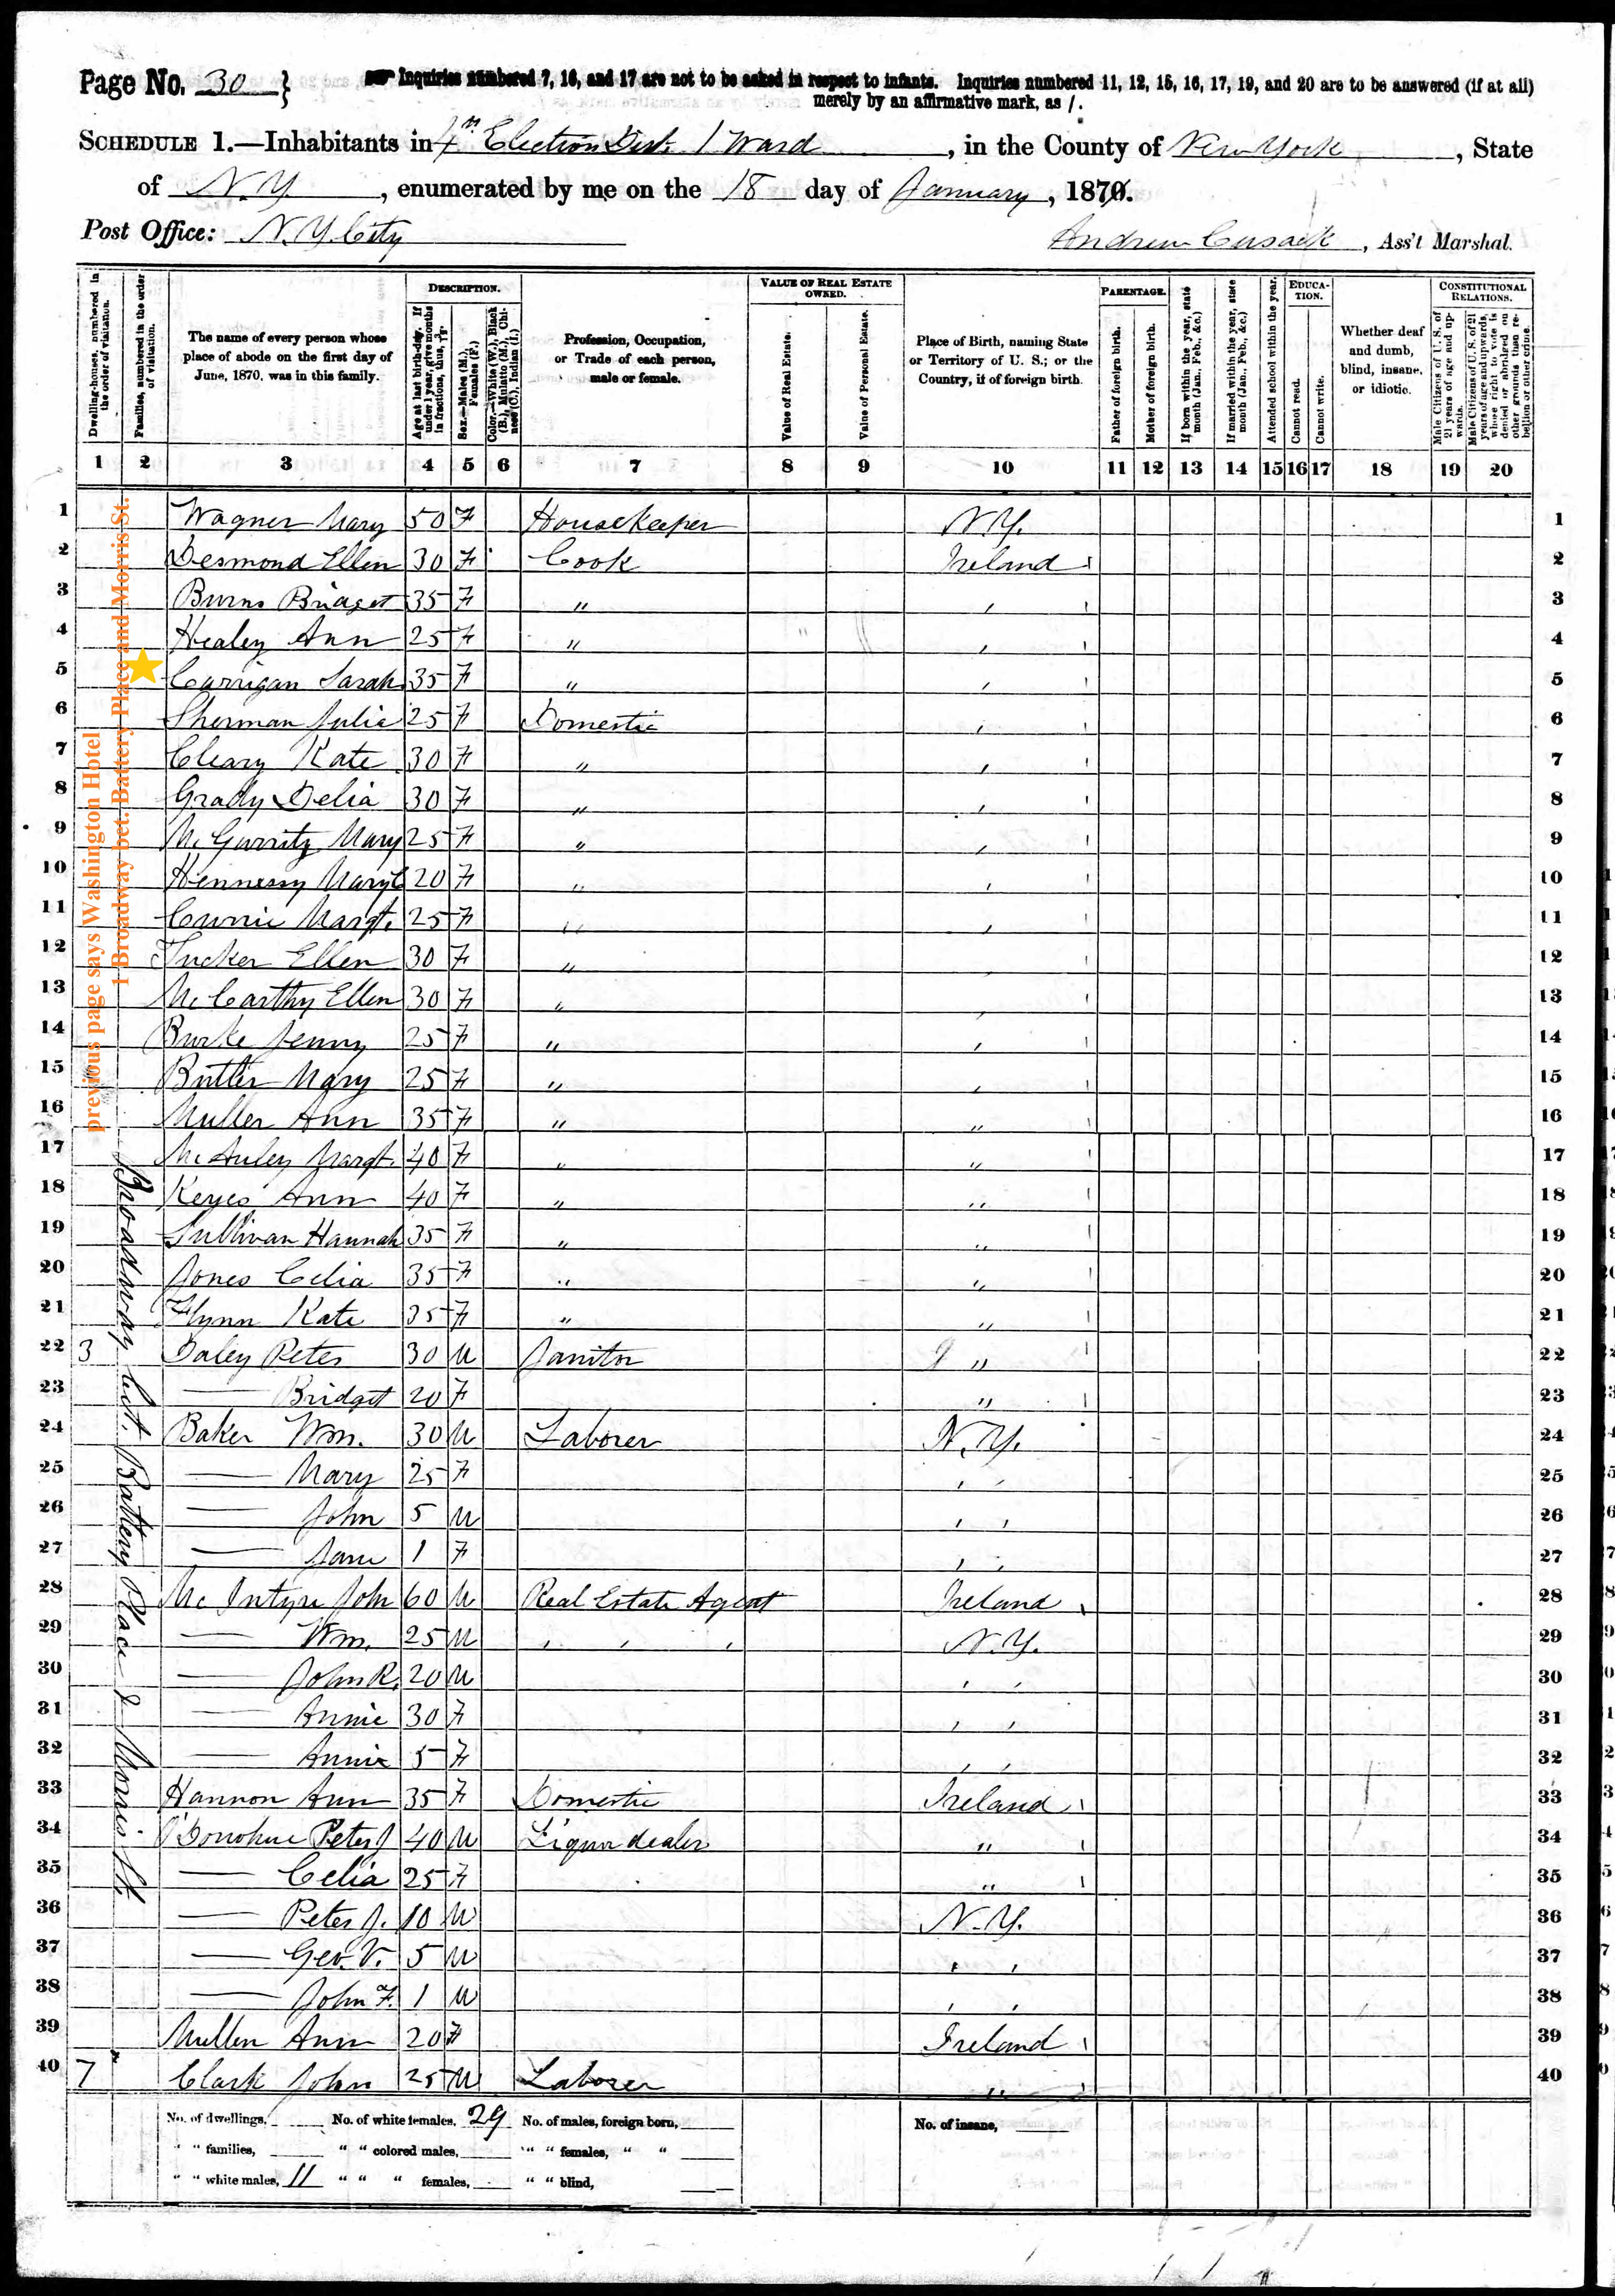 Page No. 30 } Inquiries numbered 7, 16, and 17 are not to be asked in respect to infants. Inquiries numbered 11, 12, 15, 16, 17, 19, and 20 are to be answered (if at all)
merely by an affirmative mark, as /.
SCHEDULE 1.—Inhabitants in 4th Election Dist. 1 Ward, in the County of New York, State
of N.Y., enumerated by me on the 18 day of January, 1870.
Post Office: N.Y. City Andrew Cusack, Ass't Marshal.
Dwelling-houses, numbered in the order of visitation.
Families, numbered in the order of visitation.
The name of every person whose place of abode on the first day of June, 1870, was in this family.
DESCRIPTION.
Age at last birth-day. If under 1 year, give months in fractions, thus, 3/12.
Sex.—Males (M.), Females (F.)
Color.—White (W.), Black (B.), Mulatto (M.), Chinese (C.), Indian (I.)
Profession, Occupation, or Trade of each person, male or female.
VALUE OF REAL ESTATE OWNED.
Value of Real Estate.
Value of Personal Estate.
Place of Birth, naming State or Territory of U. S.; or the Country, if of foreign birth.
PARENTAGE.
Father of foreign birth.
Mother of foreign birth.
If born within the year, state month (Jan., Feb., &c.)
If married within the year, state month (Jan., Feb., &c.)
Attended school within the year.
EDUCATION.
Cannot read.
Cannot write.
Whether deaf and dumb, blind, insane, or idiotic.
CONSTITUTIONAL RELATIONS.
Male Citizens of U. S. of 21 years of age and upwards.
Male Citizens of U. S. of 21 years of age and upwards, whose right to vote is denied or abridged on other grounds than rebellion or other crime.
1 2 3 4 5 6 7 8 9 10 11 12 13 14 15 16 17 18 19 20
previous page says Washington Hotel
1 Broadway bet. Battery Place and Morris St.
Broadway bet. Battery Place & Morris St.
1 Wagner Mary 50 F Housekeeper N.Y. 1
2 Desmond Ellen 30 F Cook Ireland 2
3 Burns Bridget 35 F " 3
4 Healey Ann 25 F " 4
5 Carrigan Sarah 35 F " 5
6 Sherman Julia 25 F Domestic 6
7 Cleary Kate 30 F " 7
8 Grady Delia 30 F " 8
9 McGarrity Mary 25 F " 9
10 Hennessy Mary C 20 F " 10
11 Currie Margt. 25 F " 11
12 Tucker Ellen 30 F " 12
13 McCarthy Ellen 30 F " 13
14 Burke Jenny 25 F " 14
15 Butler Mary 25 F " 15
16 Muller Ann 35 F " " 16
17 McAuley Margt. 40 F " " 17
18 Keyes Ann 40 F " " 18
19 Sullivan Hannah 35 F " " 19
20 Jones Celia 35 F " " 20
21 Flynn Kate 35 F " " 21
22 3 Daley Peter 30 M Janitor " 22
23 — Bridget 20 F " 23
24 Baker Wm. 30 M Laborer N.Y. 24
25 — Mary 25 F " 25
26 — John 5 M " 26
27 — Jane 1 F " 27
28 McIntyre John 60 M Real Estate Agent Ireland 28
29 — Wm. 25 M " " " N.Y. 29
30 — John R. 20 M " 30
31 — Annie 30 F " 31
32 — Annie 5 F " 32
33 Hannon Ann 35 F Domestic Ireland 33
34 O'Donohue Peter J 40 M Liquor dealer " 34
35 — Celia 25 F " 35
36 — Peter J. 10 M N.Y. 36
37 — Geo. V. 5 M " 37
38 — John F. 1 M " 38
39 Mullen Ann 20 F Ireland 39
40 7 Clark John 25 M Laborer " 40
No. of dwellings, No. of white females, 29 No. of males, foreign born, No. of insane,
" " families, " " colored males, " " females, " "
" " white males, 11 " " " females, " " blind,